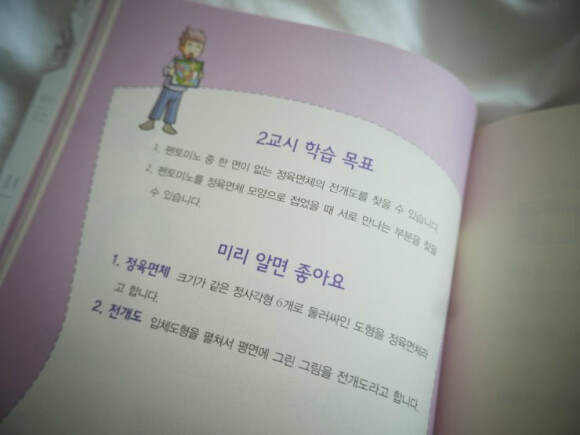 2교시 학습 목표
1. 펜토미노 중 한 면이 없는 정육면체의 전개도를 찾을 수 있습니다.
2. 펜토미노를 정육면체 모양으로 접었을 때 서로 만나는 부분을 찾을
수 있습니다.
미리 알면 좋아요
1. 정육면체 크기가 같은 정사각형 6개로 둘러싸인 도형을 정육면체라
고 합니다.
2. 전개도 입체도형을 펼쳐서 평면에 그린 그림을 전개도라고 합니다.